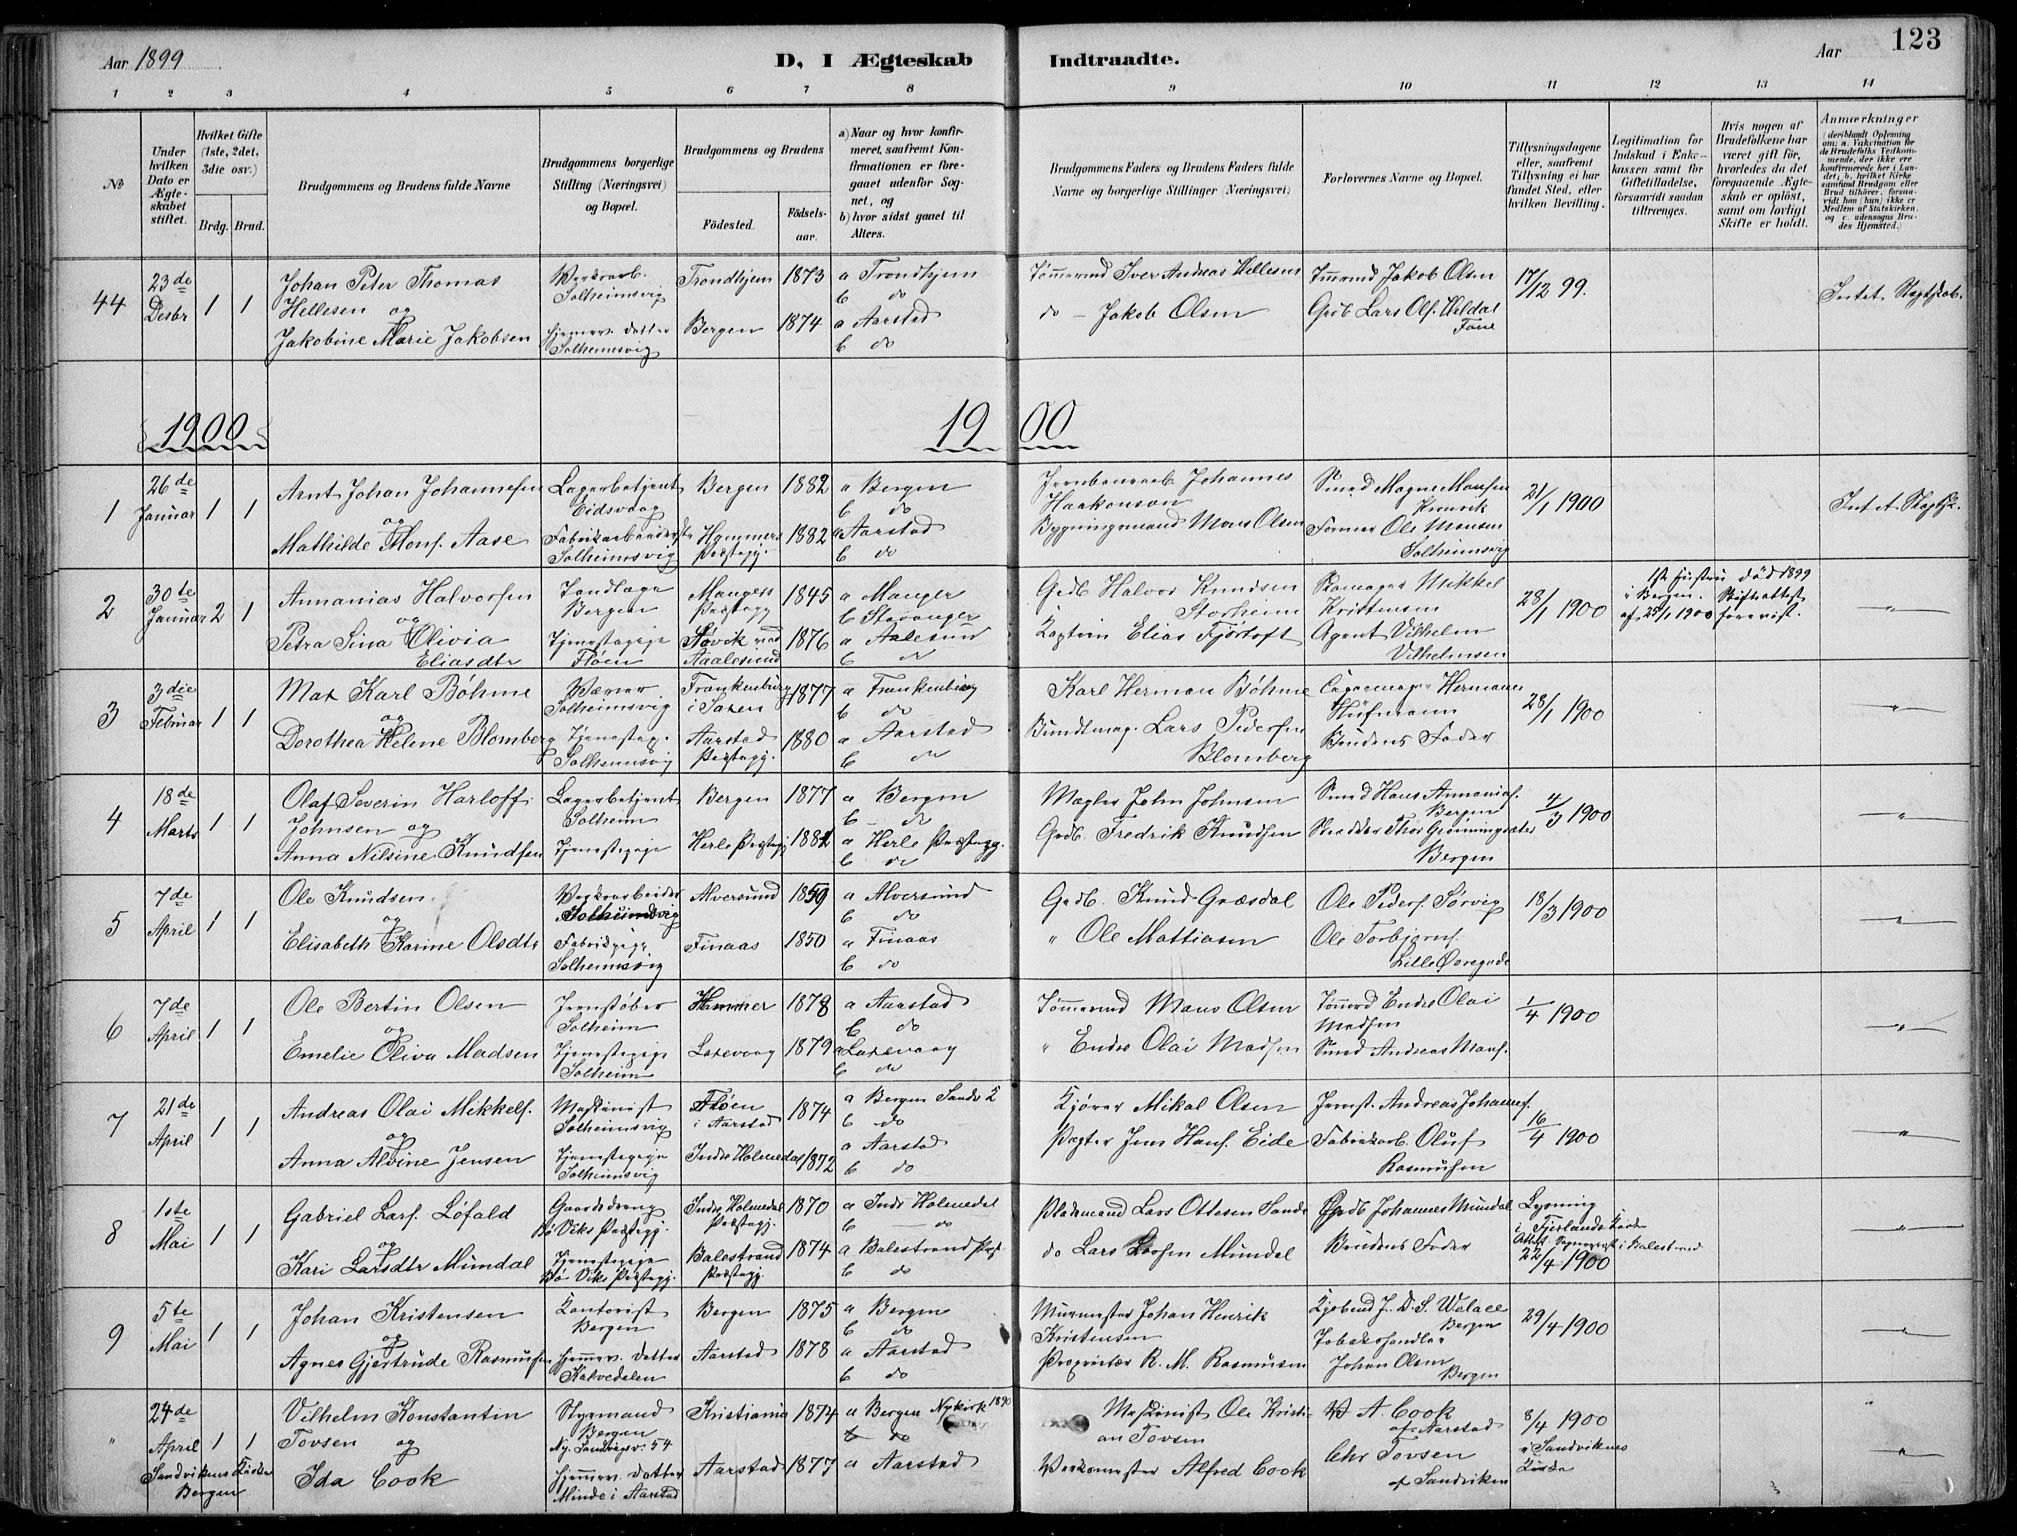 Aar 1899
D, I Ægteskab Indtraadte.
Aar 123
1 2 3 4 5 6 7 8 9 10 11 12 13 14
No
Under hvilken Dato er Ægteskabet stiftet.
Hvilket Gifte (1ste, 2det, 3die osv.)
Brdg. Brud.
Brudgommens og Brudens fulde Navne
Brudgommens borgerlige Stilling (Næringsvei) og Bopæl.
Brudgommens og Brudens
Fødested. Fødselsaar.
a) Naar og hvor konfirmeret, saafremt Konfirmationen er foregaaet udenfor Sognet, og
b) hvor sidst gaaet til Alters.
Brudgommens Faders og Brudens Faders fulde Navne og borgerlige Stillinger (Næringsvei)
Forlovernes Navne og Bopæl.
Tillysningsdagene eller, saafremt Tillysning ei har fundet Sted, efter hvilken Bevilling.
Legitimation for Indskud i Enkekassen samt for Giftetilladelse, forsaavidt saadan tiltrænges.
Hvis nogen af Brudefolkene har været gift før, hvorledes da det foregaaende Ægteskab er opløst, samt om lovligt Skifte er holdt.
Anmærkninger
44 23de Desbr 1 1
Johan Peter Thomas Hellesen og
Jakobine Marie Jakobsen
Solheimsvig
Hjemmev. datter Solheimsvig
Trondhjem 1873 a Trondhjem b do
Bergen 1874 a Aarstad b do
Tømmermd Iver Andreas Hellesen
do - Jakob Olsen
Tmrmd Jakob Olsen
Grdb Lars Ols. Heldal Fane
17/12 99.
Intet Slegtskab.
1900 1900
1 26de Januar 1 1
Arnt Johan Johannesen og
Mathilde Mons. Aase
Lagerbetjent Eidsvaag
Fabrikarbeiderske Solheimsvig
Bergen 1882 a Bergen b do
Hammers Præstegj. 1882 a Aarstad b do
Jernbanearb. Johannes Haakonson
Bygningsmand Mons Olsen
Smed Magne Monsen
Former Ole Monsen Solheimsvig
21/1 1900
Intet Slegtsk.
2 30te Januar 2 1
Annanias Halvorsen og
Petra Sina Olivia Eliasdtr
Bergen
Tjenestepige Fløen
Mangers Præstegj 1845 a Manger b Stavanger
Søvik ved Aalesund 1876 a Aalesund b do
Grdb Halvor Knudsen Storheim
Kaptein Elias Fjørtoft
Skomager Mikkel Kristensen
Agent Vilhelm Vilhelmsen
28/1 1900
1ste Hustru død 1899 i Bergen. Skifteattest af 25/1 1900 forevist.
"
3 3die Februar 1 1
Max Karl Böhme og
Dorothea Helene Blomberg
Væver Solheimsvig
Tjenestep. Solheimsvig
Frankenburg i Saxen 1877 a Frankenburg b do
Aarstad Præstegj. 1880 a Aarstad b do
Karl Herman Böhme
Buntmag. Lars Pedersen Blomberg
Hermann Hüfmann
Brudens Fader
28/1 1900
"
4 18de Marts 1 1
Olaf Severin Harloff Johnsen og
Anna Nilsine Knudsen
Lagerbetjent Solheim
Tjenestepige
Bergen 1877 a Bergen b do
Herlø Præstegj 1882 a Herlø Præstegj. b do
Mægler John Johnsen
Grdb. Fredrik Knudsen
Smed Hans Annanias. Bergen
Skrædder Thor Grønningsæter Bergen
4/3 1900
"
5 7de April 1 1
Ole Knudsen og
Elisabeth Karine Olsdtr
Verksarbeider Solheimsvig
Fabrikpige Solheimsvig
Alversund 1859 a Alversund b do
Finaas 1850 a Finaas b do
Grdb. Knud Græsdal
" Ole Mattiasen
Ole Peders. Sørvig
Ole Torbjørns. Lille Øvregade
18/3 1900
"
6 7de April 1 1
Ole Bertin Olsen og
Emelie Oliva Madsen
Jernstøber Solheim
Tjenestepige Solheim
Hammer 1878 a Aarstad b do
Laxevaag 1879 a Laxevaag b do
Tømmermd Mons Olsen
" Endre Olai Madsen
Tømmermd Endre Olai Madsen
Smed Andreas Mons.
1/4 1900
"
7 21de April 1 1
Andreas Olai Mikkels. og
Anna Alvine Jensen
Maskinist Solheimsvig
Tjenestepige Solheimsvig
Fløen i Aarstad 1874 a Bergen Sandv. K b do
Indre Holmedal 1872 a Aarstad b do
Kjører Mikal Olsen
Pagter Jens Hans. Eide
Jernst. Andreas Johanns.
Fabrikarb. Oluf Rasmussen
16/4 1900
"
8 1ste Mai 1 1
Gabriel Lars. Løfald og
Kari Larsdtr Mundal
Gaardsdreng Bø Viks Præstegj.
Tjenestepige Bø Viks Præstegj.
Indre Holmedal Præstegj. 1870 a Indr Holmedal b do
Balestrand Præstegj. 1874 a Balestrand Præst b do
Pladsmand Lars Ottesen Sande
do Lars Larsen Mundal
Grdb Johannes Mundal
Brudens Fader
Lysning i Fjærlands Kirke Attest Sognepræst i Balestrand 22/4 1900
"
9 5te Mai 1 1
Johan Kristensen og
Agnes Gjertrude Rasmussen
Kontorist Bergen
Hjemmev. datter Kalvedalen
Bergen 1875 a Bergen b do
Aarstad 1878 a Aarstad b do
Murmester Johan Henrik Kristensen
Proprietær R. M. Rasmussen
Kjøbmd J. D. S. Walace Bergen
Tobakshandler Johan Olsen Bergen
29/4 1900
"
" 24de April 1 1
Sandvikens Kirke Bergen
Vilhelm Konstantin Tovsen og
Ida Cook
Styrmand Bergen Ny. Sandvigsv. 54
Hjemmev. datter Minde i Aarstad
Kristiania 1874 a Bergen Nykirk 1890 b do
Aarstad 1877 a Aarstad
Maskinist Ole Kristian Tovsen
Verksmester Alfred Cook
W A. Cook af Aarstad
Chr Tovsen af Sandviken
8/4 1900 i Sandvikens Kirke
"